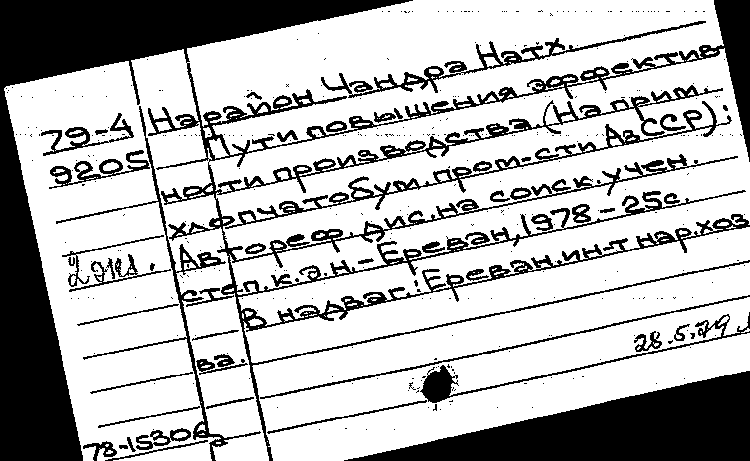 79-4 Нарайон Чандра Натх.
9205 Пути повышения эффектив-
ности производства. (На прим.
хлопчатобум. пром-сти АзССР);
2 экз. Автореф. дис. на соиск. учен.
степ. к.э.н. - Ереван, 1978. - 25с.
В надзаг.: Ереван. ин-т нар. хоз
ва.
28.5.79
78-15306